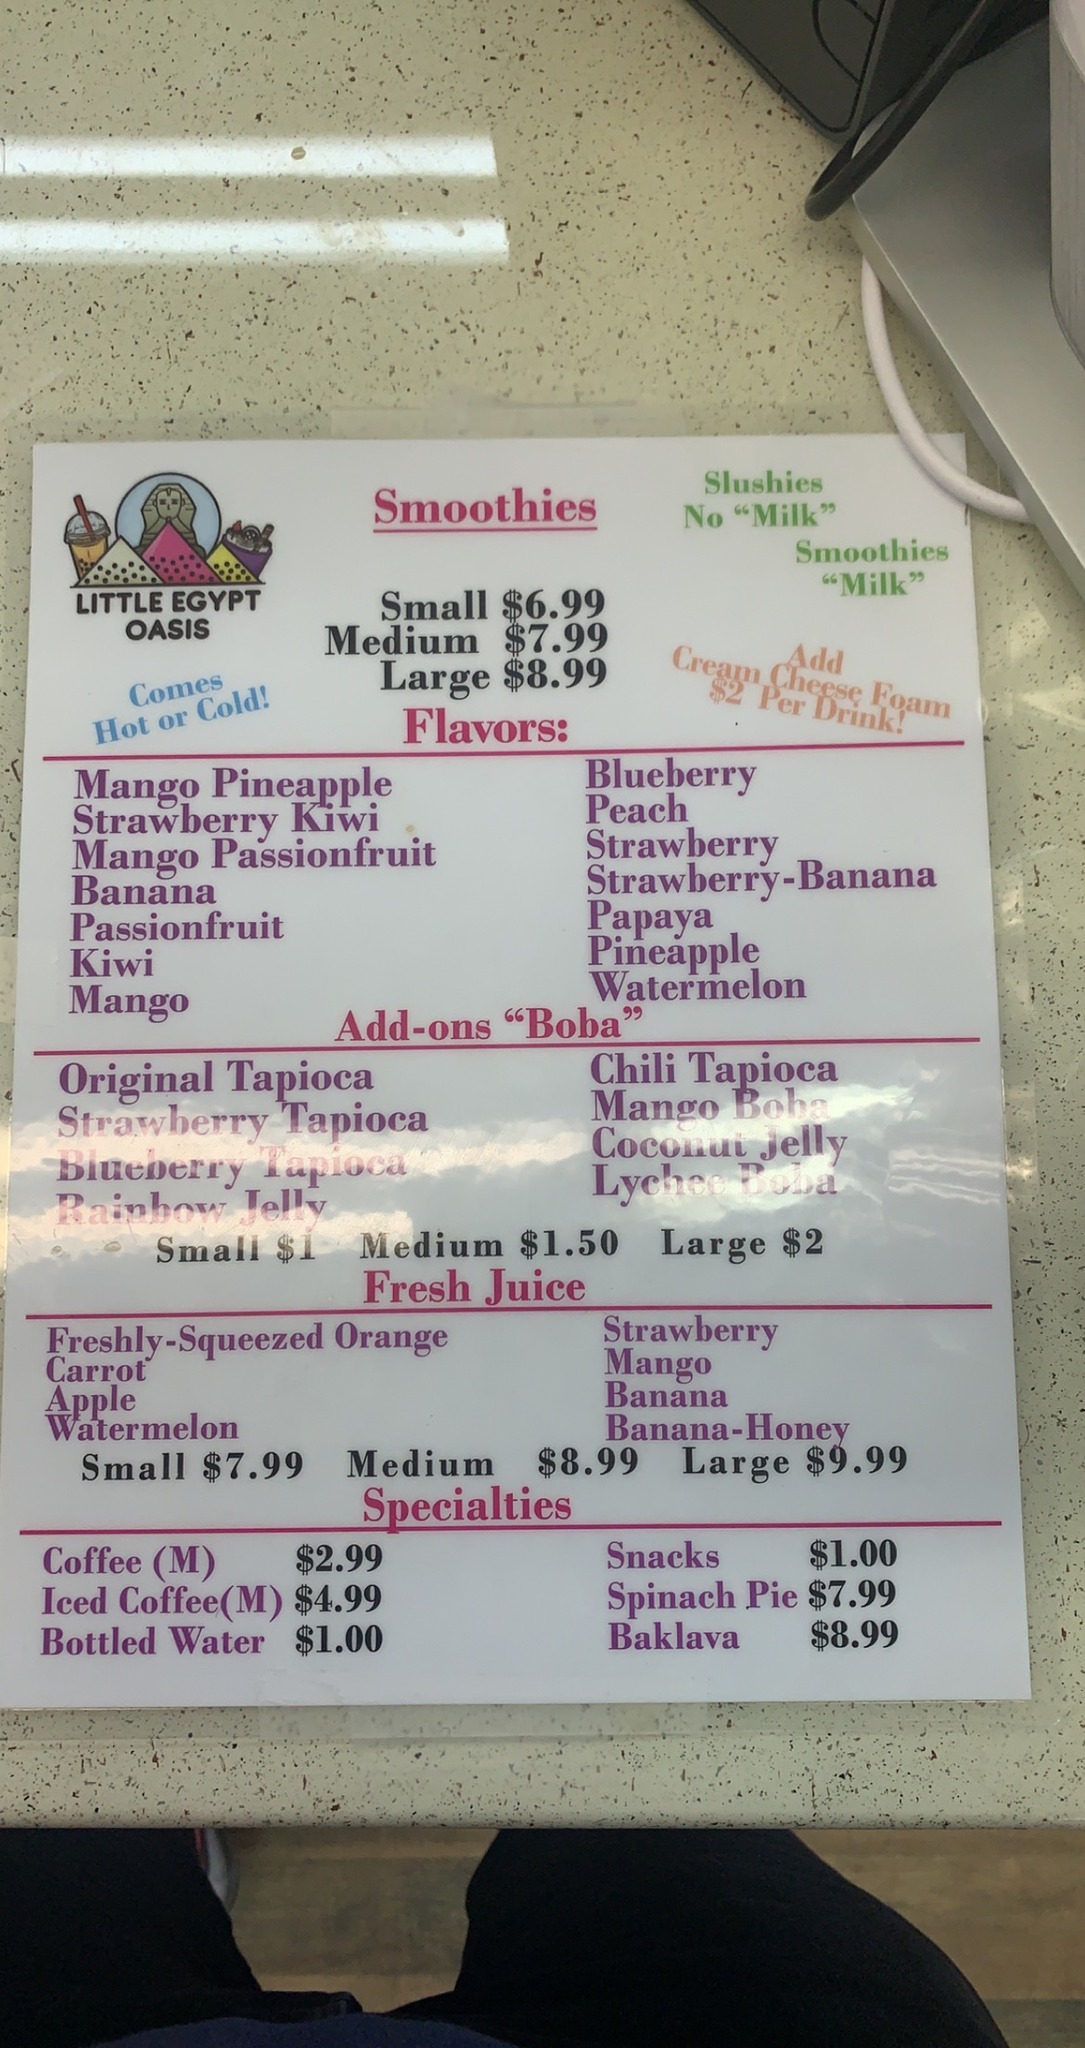 LITTLE EGYPT
OASIS
Smoothies
Slushies
No “Milk”
Smoothies
“Milk”
Small $6.99
Medium $7.99
Large $8.99
Comes
Hot or Cold!
Add
Cream Cheese Foam
$2 Per Drink!
Flavors:
Mango Pineapple
Strawberry Kiwi
Mango Passionfruit
Banana
Passionfruit
Kiwi
Mango
Blueberry
Peach
Strawberry
Strawberry-Banana
Papaya
Pineapple
Watermelon
Add-ons “Boba”
Original Tapioca
Strawberry Tapioca
Blueberry Tapioca
Rainbow Jelly
Chili Tapioca
Mango Boba
Coconut Jelly
Lychee Boba
Small $1 Medium $1.50 Large $2
Fresh Juice
Freshly-Squeezed Orange
Carrot
Apple
Watermelon
Strawberry
Mango
Banana
Banana-Honey
Small $7.99 Medium $8.99 Large $9.99
Specialties
Coffee (M) $2.99
Iced Coffee(M) $4.99
Bottled Water $1.00
Snacks $1.00
Spinach Pie $7.99
Baklava $8.99